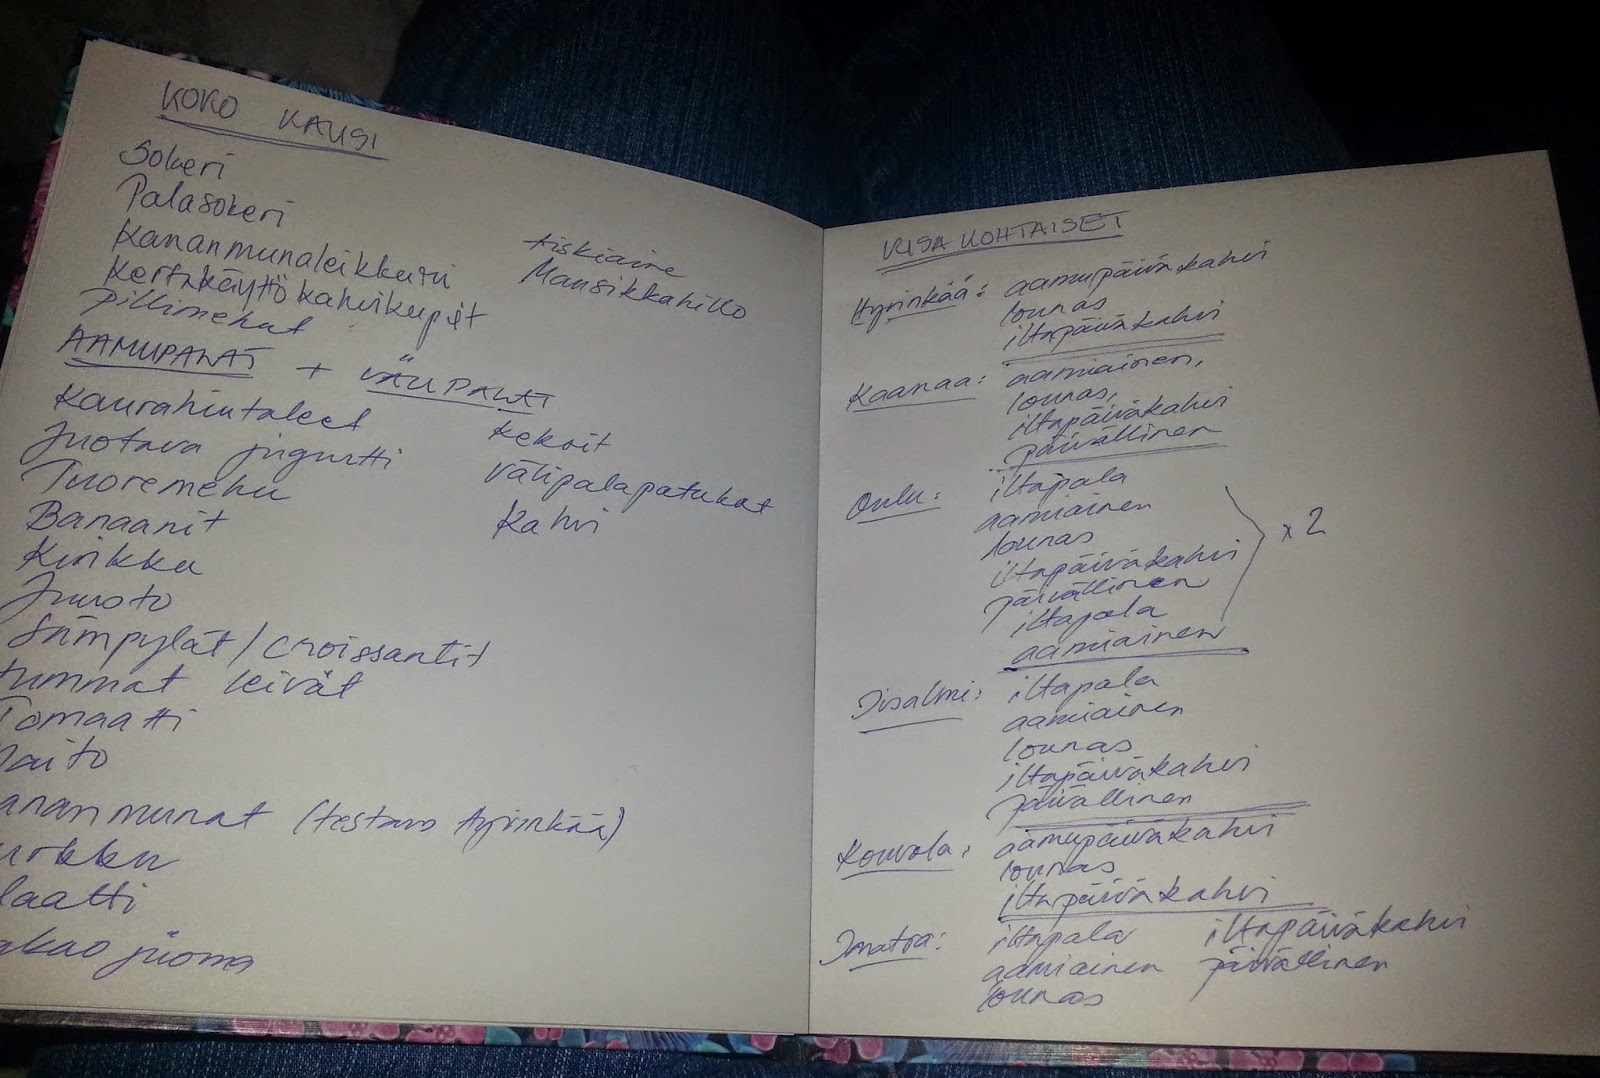 KOKO KAUSI
Sokeri
Palasokeri
Kananmunaleikkuri
Kertakäyttö kahvikupit
pillimehut
tiskiaine
Mansikkahillo
AAMUPALAT + VÄLIPALAT
Kaurahiutaleet
Juotava jugurtti
Tuoremehu
Banaanit
Kinkku
Juusto
Sämpylät / croissantit
tummat leivät
Tomaatti
aito
ananmunat (testaus Hyvinkää)
urkku
laatti
akao juoma
keksit
välipalapatukat
Kahvi
KISA KOHTAISET
Hyvinkää: aamupäiväkahvi
lounas
iltapäiväkahvi
Kaanaa: aamiainen,
lounas,
iltapäiväkahvi
päivällinen
Oulu: iltapala
aamiainen
lounas
iltapäiväkahvi
päivällinen
iltapala
aamiainen
x 2
Iisalmi: iltapala
aamiainen
lounas
iltapäiväkahvi
päivällinen
Kouvola: aamupäiväkahvi
lounas
iltapäiväkahvi
Imatra: iltapala iltapäiväkahvi
aamiainen päivällinen
lounas